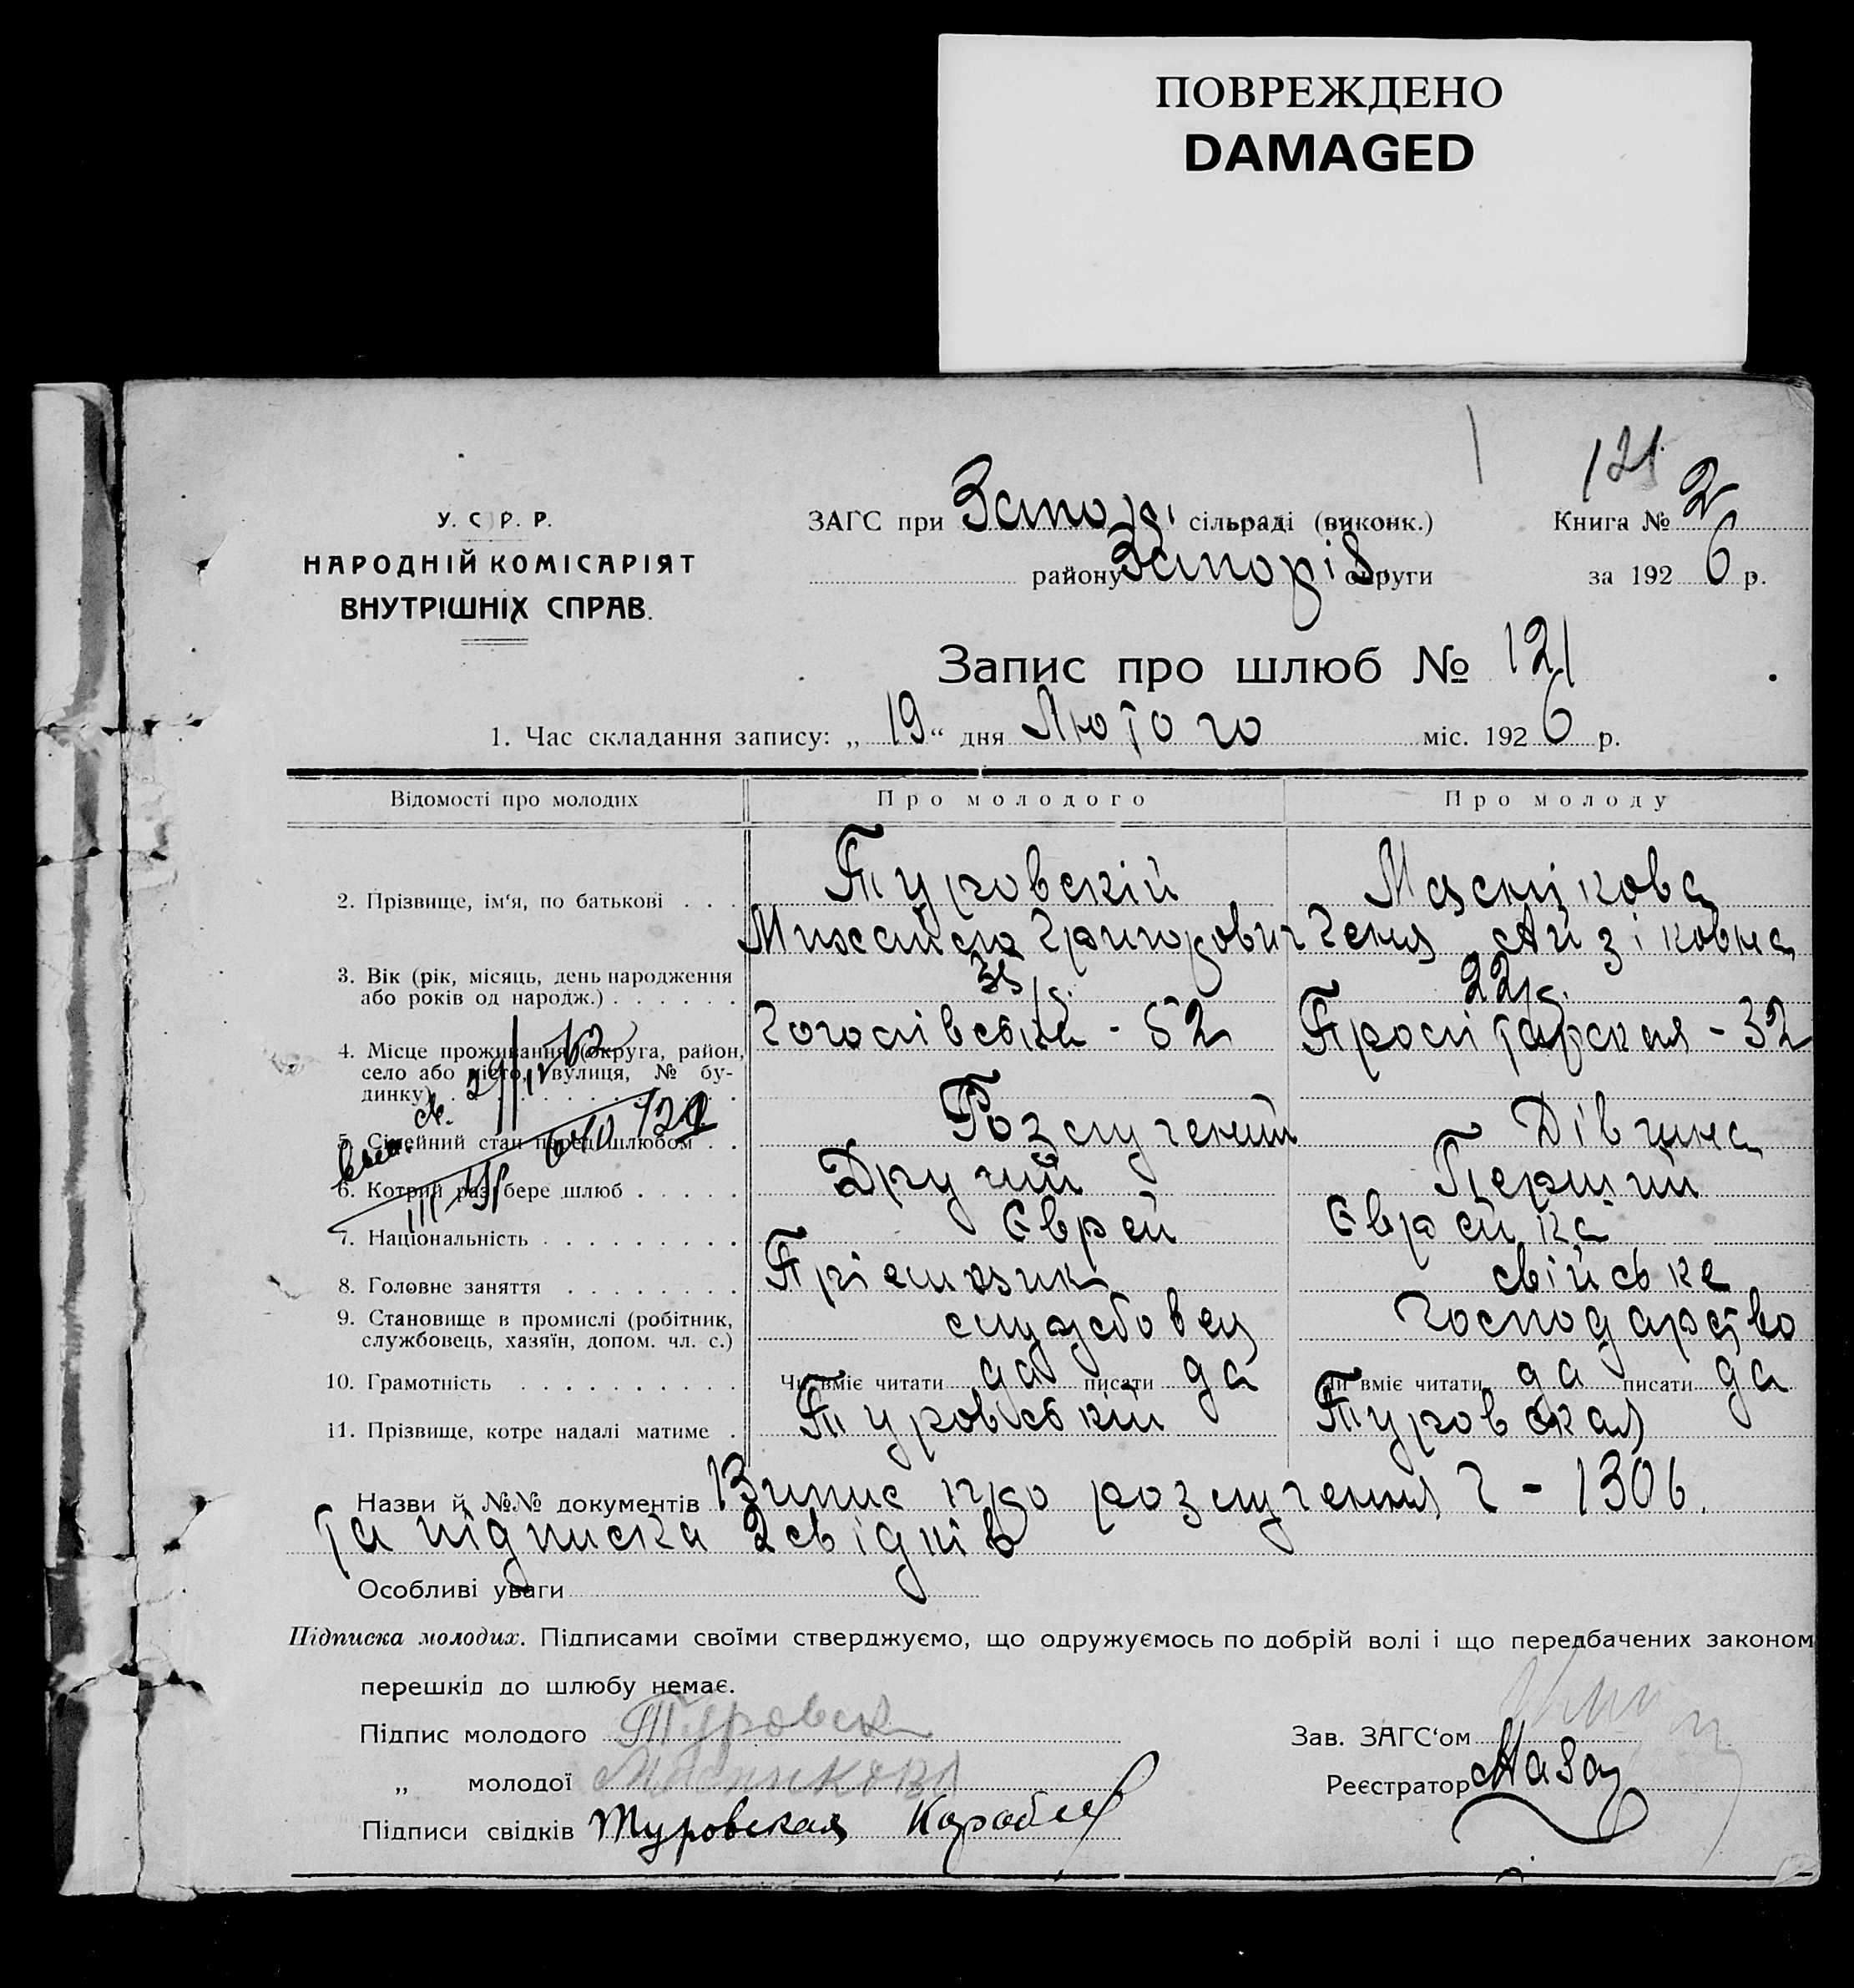 ПОВРЕЖДЕНО
DAMAGED
121
У. С. Р. Р.
НАРОДНІЙ КОМІСАРІЯТ
ВНУТРІШНІХ СПРАВ.
ЗАГС при Запорі сільраді (виконк.)
Книга № 2
району Запоріз округи
за 1926 р.
Запис про шлюб № 121
1. Час складання запису: „ 19 “ дня Лютого міс. 1926 р.
Відомості про молодих Про молодого Про молоду
2. Прізвище, ім‘я, по батькові . . . Туровскій Маснікова
Михайло Григорович Геня Айзіковна
3. Вік (рік, місяць, день народження 22р.
або років од народж.) . . . . . .
Гоголівській - 52 Пролітарская - 32
4. Місце проживання (округа, район,
село або місто, вулиця, № бу-
динку) . . .
5. Сімейний стан перед шлюбом . . Розлучений Дівчина
6. Котрий раз бере шлюб . . . . . Другий Перший
7. Національність . . . . . . . . . Єврей Єврейка
8. Головне заняття . . . . . . . . Пріємщик свійське
9. Становище в промислі (робітник, службовец господарство
службовець, хазяїн, допом. чл. с.)
10. Грамотність . . . . . . . . . . Чи вміє читати да писати да Чи вміє читати да писати да
11. Прізвище, котре надалі матиме . Туровській Туровская
Назви й №№ документів Випис про розлучення Ч - 1306.
та підписка 2 свідків
Особливі уваги
Підписка молодих. Підписами своїми стверджуємо, що одружуємось по добрій волі і що передбачених законом
перешкід до шлюбу немає.
Підпис молодого Туровск
Зав. ЗАГС‘ом
„ молодої Масникова
Реєстратор
Підписи свідків Туровская